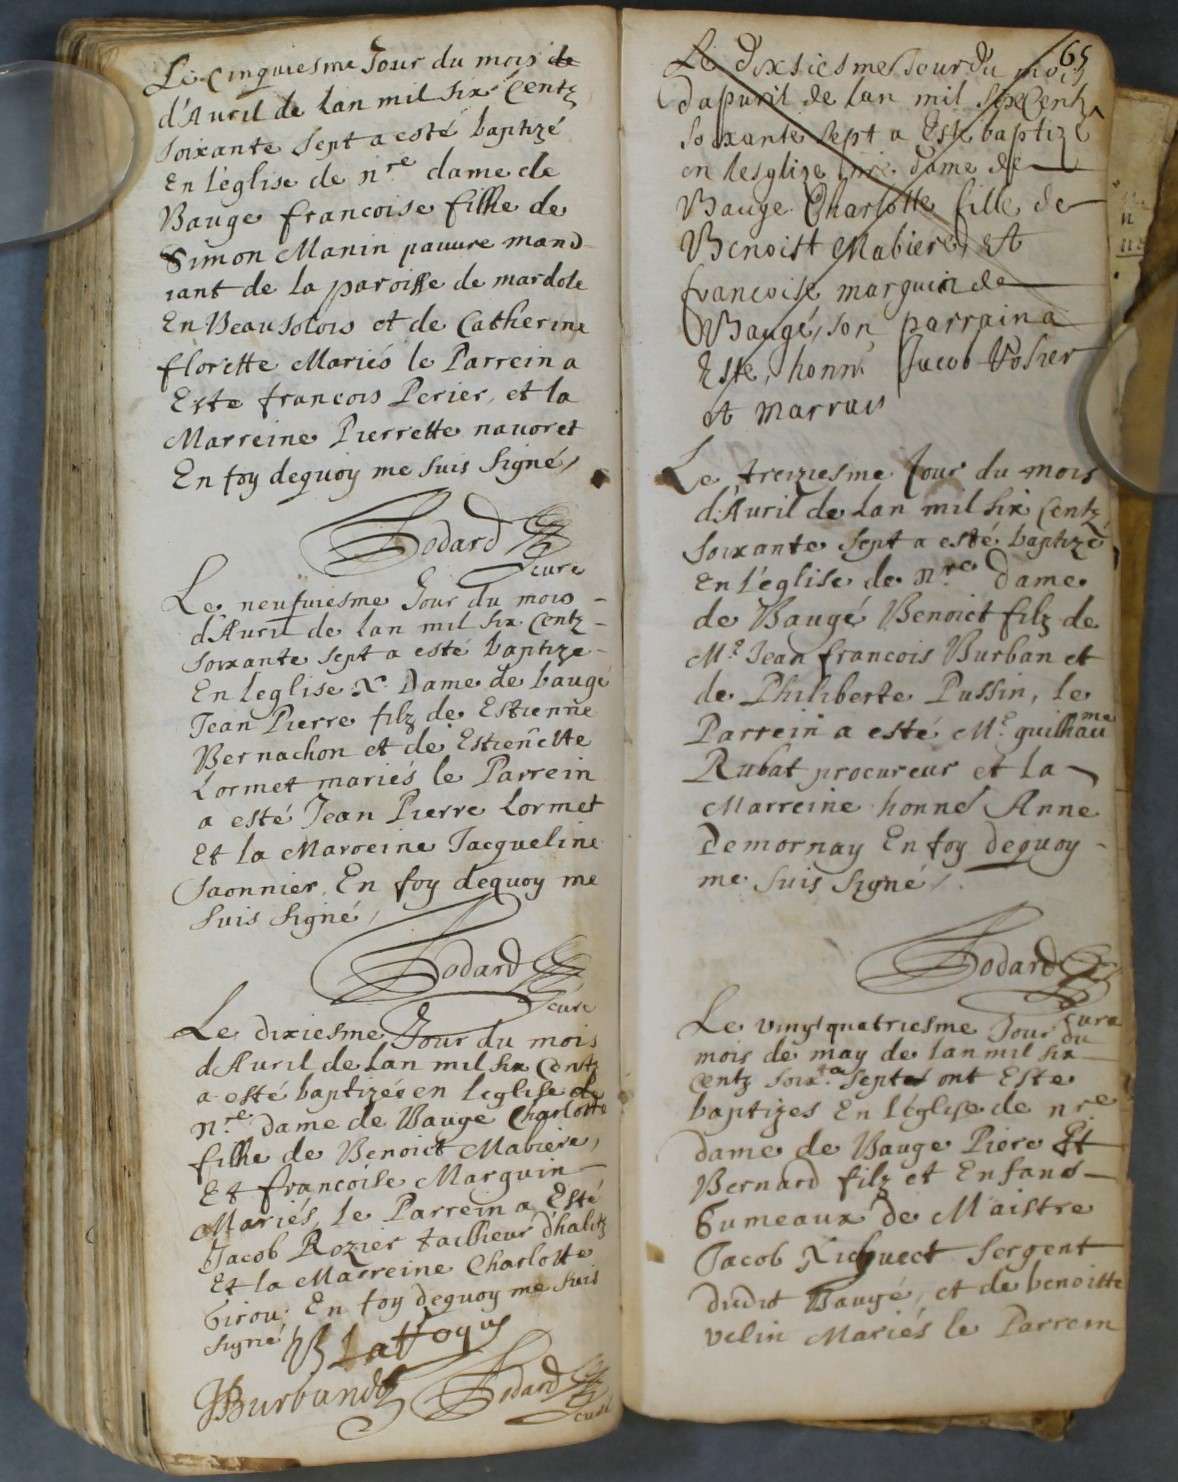 Le Cinquiesme Jour du mois de
d'Auril de lan mil six Centz
soixante sept a esté baptizé
En l'eglise de nre dame de
Bauge francoise filhe de
Simon Manin pauure mand
iant de la paroisse de mardole
En Beausolois et de Catherine
florette Mariés le Parrein a
Este francois Perier, et la
Marreine Pierrette nauoret
En foy dequoy me suis Signé,
Godard
cure
Le neufuiesme Jour du mois
d'Auril de lan mil six Centz
soixante sept a esté baptize
En leglise N. Dame de baugé
Jean Pierre filz de Estienne
Bernachon et de Estiennette
Lormet mariés le Parrein
a esté Jean Pierre Lormet
Et la Marreine Jacqueline
Saonnier. En foy dequoy me
Suis Signé,
Godard
cure
Le dixiesme Jour du mois
d'Auril de lan mil six Centz
a esté baptizée en leglise de
nre dame de Bauge Charlotte
filhe de Benoict Mabiere,
Et francoise Marguin
Mariés, le Parrein a Esté
Jacob Rozier tailleur d'habitz
Et la Marreine Charlotte
Girou. En foy dequoy me suis
signé
Burband Godard
cure
65
Le dixsiesme Jour du mois
dapuril de lan mil six Centz
soixante sept a Este baptizé
en lesglize nre dame de
Bauge Charlotte fille de
Benoist Mabiere, et
francoise marguin de
Baugé, son parrain a
Este, honn. Jacob Rosier
et marrais
Le treiziesme Jour du mois
d'Auril de lan mil six Centz
soixante sept a esté baptizé
En l'eglise de nre Dame
de Baugé Benoict filz de
Me Jean francois Burban et
de Philiberte Pussin, le
Parrein a esté Me guilhaume
Rubat procureur et la
Marreine honne Anne
Demornay En foy dequoy
me suis signé,
Godard
cure
Le vingt quatriesme Jour du
mois de may de lan mil six
Centz soixte sept ont Este
baptizes En l'eglise de nre
dame de Bauge Piere Et
Bernard filz et Enfans
Gumeaux de Maistre
Jacob Sergent
dudit Baugé, et de benoitte
velin Mariés le Parrein